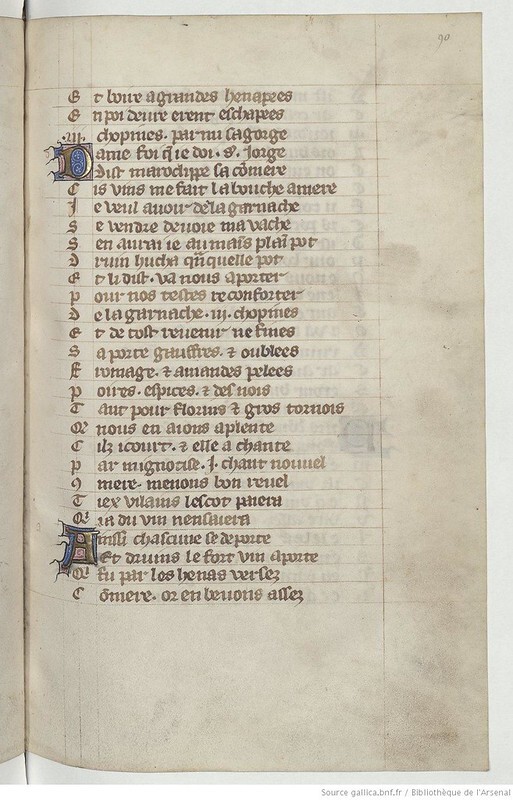 90
E t boire a grandes henapees
E n poi deure erent eschapees
.iij. chopines. par mi sa gorge
D ame foi q̃ ie doi .s. Jorge
D ist maroclippe sa cõmere
C is vins me fait la bouche amere
J e veul auoir de la garnache
S e vendre deuoie ma vache
S en aurai ie au mais plai pot
D ruin hucha qñquelle pot
E t li dist. va nous aporter
P our nos testes reconforter
D e la garnache .iij. chopines
E t de tost reuenir ne fines
S aporte gauffres. ⁊ oublees
F romage. ⁊ amandes pelees
P oires. espices. ⁊ des nois
T ant pour florins ⁊ gros tornois
Q̃ nous en aions a plente
C ilz i court. ⁊ elle a chante
P ar mignotise .J. chant nouuel
9 mere. menons bon reuel
T iex vilains lescot paiera
Q̃ ia du vin nensaiera
A inssi chascune se deporte
E t druins le fort vin aporte
Q̃ fu par les henas versez
C õmere. or en beuons assez
Source gallica.bnf.fr / Bibliothèque de l'Arsenal